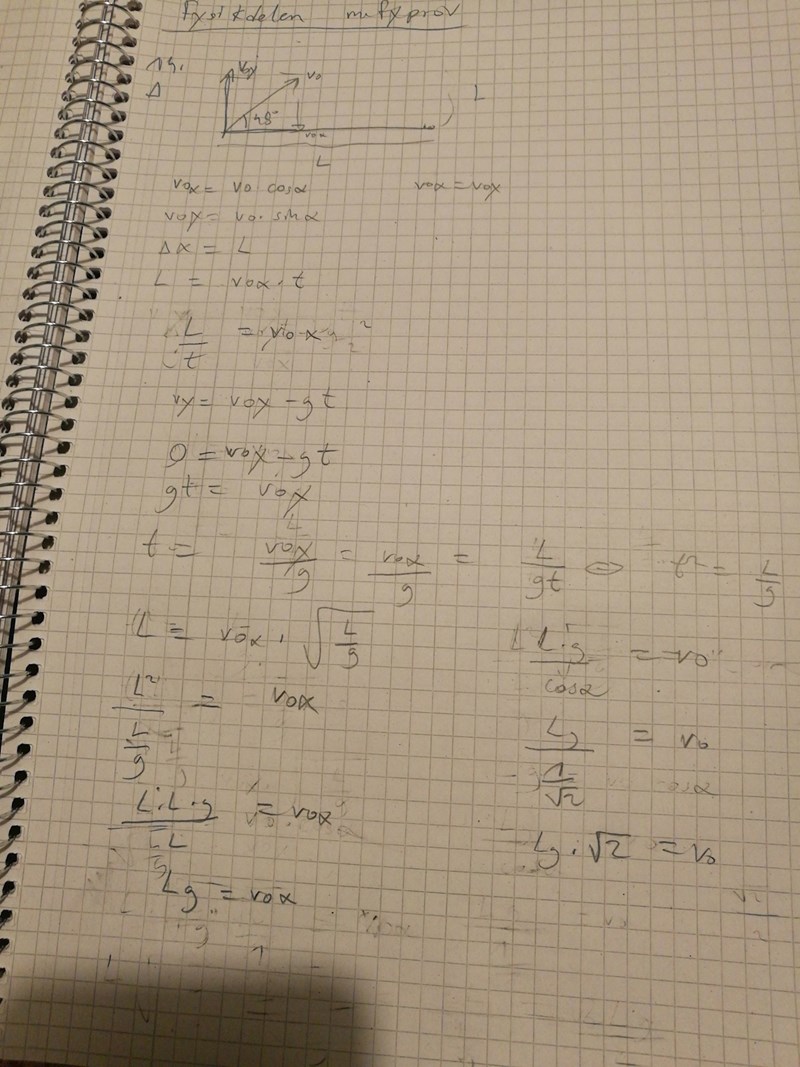 Fysikdelen mafyprov
19.
Δ
voy
vo
45°
vox
L
L
vox = vo cosα
vox = voy
voy = vo · sinα
Δx = L
L = vox · t
L/t = vox
vy = voy - gt
0 = voy - gt
gt = voy
t = voy/g = vox/g = L/gt ⇔ t² = L/g
L = vox · √(L/g)
L²/(L/g) = vox
L·L·g/L = vox
Lg = vox
L·g/cosα = vo
Lg/(1/√2) = vo
Lg · √2 = vo